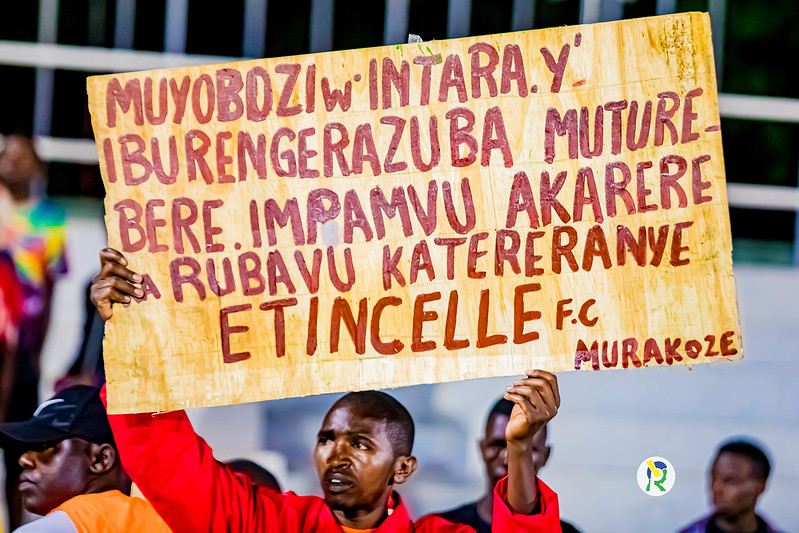 MUYOBOZI W' INTARA.Y'
IBURENGERAZUBA MUTURE-
BERE. IMPAMVU AKARERE
KA RUBAVU KATERERANYE
ETINCELLE F.C
MURAKOZE